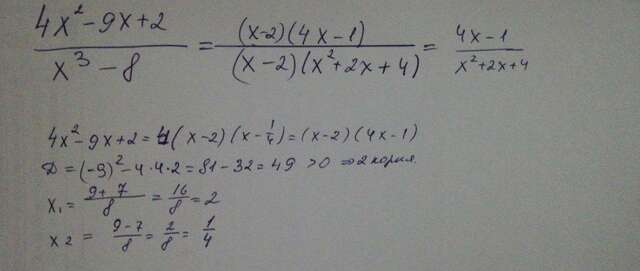 (4x²-9x+2)/(x³-8) = ((x-2)(4x-1))/((x-2)(x²+2x+4)) = (4x-1)/(x²+2x+4)
4x²-9x+2=4(x-2)(x-1/4)=(x-2)(4x-1)
D=(-9)²-4·4·2=81-32=49 >0 ⇒2 корня.
x₁= (9+7)/8 = 16/8 = 2
x₂ = (9-7)/8 = 2/8 = 1/4